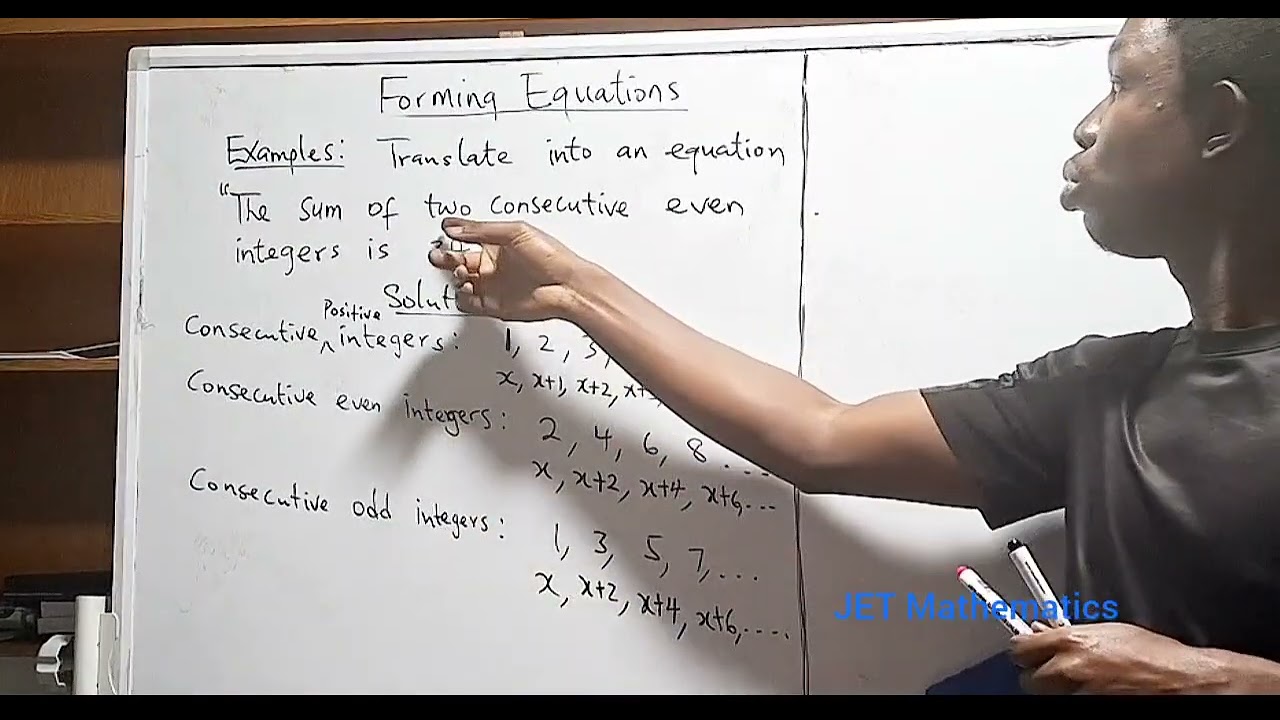 Forming Equations
Examples: Translate into an equation
"The sum of two consecutive even
integers is
Consecutive positive integers: 1, 2, 3,
x, x+1, x+2,
Consecutive even integers: 2, 4, 6, 8 ....
x, x+2, x+4, x+6,...
Consecutive odd integers: 1, 3, 5, 7,...
x, x+2, x+4, x+6,....
JET Mathematics